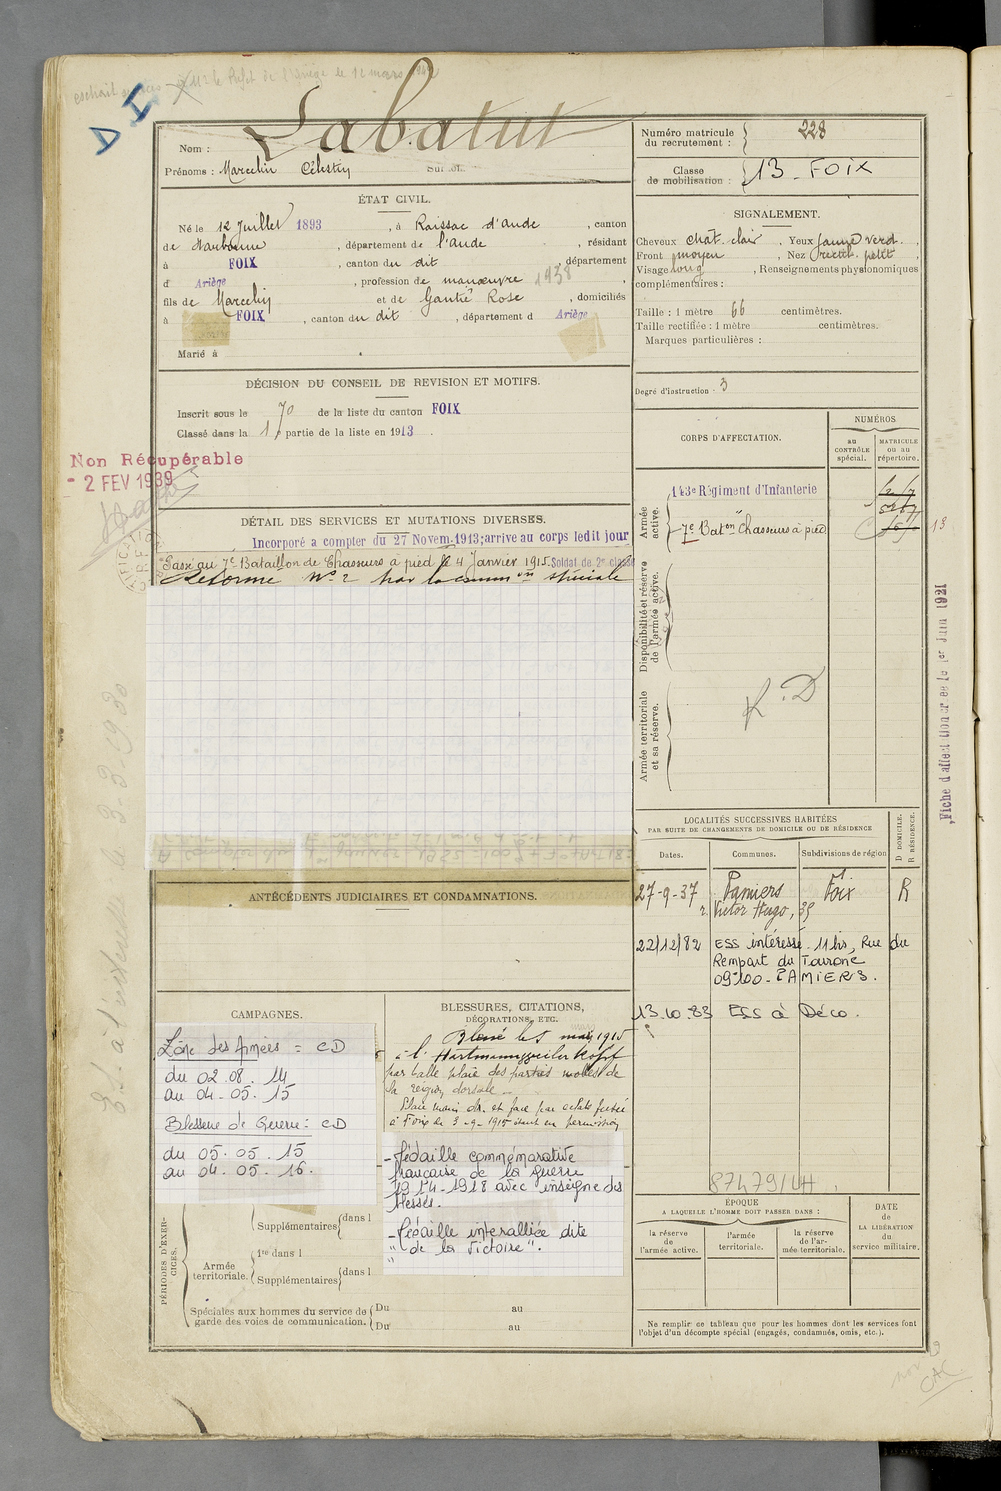 extrait
D I
Labatut
Nom :
Prénoms : Marcelin Célestin Surnom :
Numéro matricule
du recrutement : 228
Classe
de mobilisation : 13 - FOIX
ÉTAT CIVIL.
Né le 12 Juillet 1893, à Raissac d'aude, canton
de Narbonne, département de l'aude, résidant
à FOIX, canton du dit, département
d Ariège, profession de manœuvre 1938,
fils de Marcelin et de Gantié Rose, domiciliés
à FOIX, canton du dit, département d Ariège
Marié à
SIGNALEMENT.
Cheveux chât. clair, Yeux jaune verd.
Front moyen, Nez rectil. petit,
Visage long, Renseignements physionomiques
complémentaires :
Taille : 1 mètre 66 centimètres.
Taille rectifiée : 1 mètre centimètres.
Marques particulières :
Degré d'instruction : 3
DÉCISION DU CONSEIL DE REVISION ET MOTIFS.
Inscrit sous le 70 de la liste du canton FOIX
Classé dans la 1 partie de la liste en 1913.
Non Récupérable
- 2 FEV 1939
DÉTAIL DES SERVICES ET MUTATIONS DIVERSES.
Incorporé a compter du 27 Novem. 1913; arrive au corps ledit jour
Passé au 7e Bataillon de Chasseurs à pied le 4 Janvier 1915. Soldat de 2e classe
Réformé No 2 par la comm on spéciale
CORPS D'AFFECTATION.
NUMÉROS
au
CONTRÔLE
spécial.
MATRICULE
ou au
répertoire.
Armée
active.
143e Régiment d'Infanterie
7e Bat on Chasseurs à pied
13
Disponibilité et réserve
de l'armée active.
Armée territoriale
et sa réserve.
R. D
Fiche d'affectation créée le 1er Juin 1921
LOCALITÉS SUCCESSIVES HABITÉES
PAR SUITE DE CHANGEMENTS DE DOMICILE OU DE RÉSIDENCE
D DOMICILE.
R RÉSIDENCE.
Dates. Communes. Subdivisions de région
27-9-37 Pamiers Foix R
r. Victor Hugo, 35
22/12/82 ESS intéressé. 11 bis, Rue du
Rempart du Touronc
09100 - PAMIERS.
13.10.83 ESS à Déco.
ANTÉCÉDENTS JUDICIAIRES ET CONDAMNATIONS.
CAMPAGNES.
Zone des Armées = CD
du 02.08.14
au 04.05.15
Blessure de Guerre : CD
du 05.05.15
au 04.05.16.
BLESSURES, CITATIONS,
DÉCORATIONS, ETC.
Blessé le 5 mai 1915
à l'Hartmannsweilerkopf
par balle plaie des parties molles de
la région dorsale.
Plaie main dr. et face par éclats fusée
à Foix le 3-9-1915 étant en permission
- Médaille commémorative
française de la guerre
1914-1918 avec insigne des
blessés.
- Médaille interalliée dite
" de la Victoire".
PÉRIODES D'EXERCICES.
Supplémentaires dans l
Armée
territoriale.
1re dans l
Supplémentaires dans l
Spéciales aux hommes du service de
garde des voies de communication.
Du au
Du au
87479/UH
ÉPOQUE
A LAQUELLE L'HOMME DOIT PASSER DANS :
la réserve
de
l'armée active.
l'armée
territoriale.
la réserve
de l'ar-
mée territoriale.
DATE
de
LA LIBÉRATION
du
service militaire.
Ne remplir ce tableau que pour les hommes dont les services font
l'objet d'un décompte spécial (engagés, condamnés, omis, etc.).